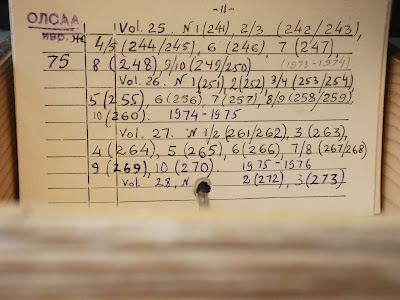 -11-
ОЛСАА
инв. Ж
Vol. 25. N 1 (241), 2/3 (242/243),
4/5 (244/245), 6 (246) 7 (247),
75
8 (248), 9/10 (249/250) (1973-1974)
Vol. 26. N 1 (251), 2 (252), 3/4 (253/254),
5 (255), 6 (256), 7 (257), 8/9 (258/259),
10 (260). 1974-1975
Vol. 27. N 1/2 (261/262), 3 (263),
4 (264), 5 (265), 6 (266), 7/8 (267/268)
9 (269), 10 (270). 1975-1976
Vol. 28, N 2 (272), 3 (273)